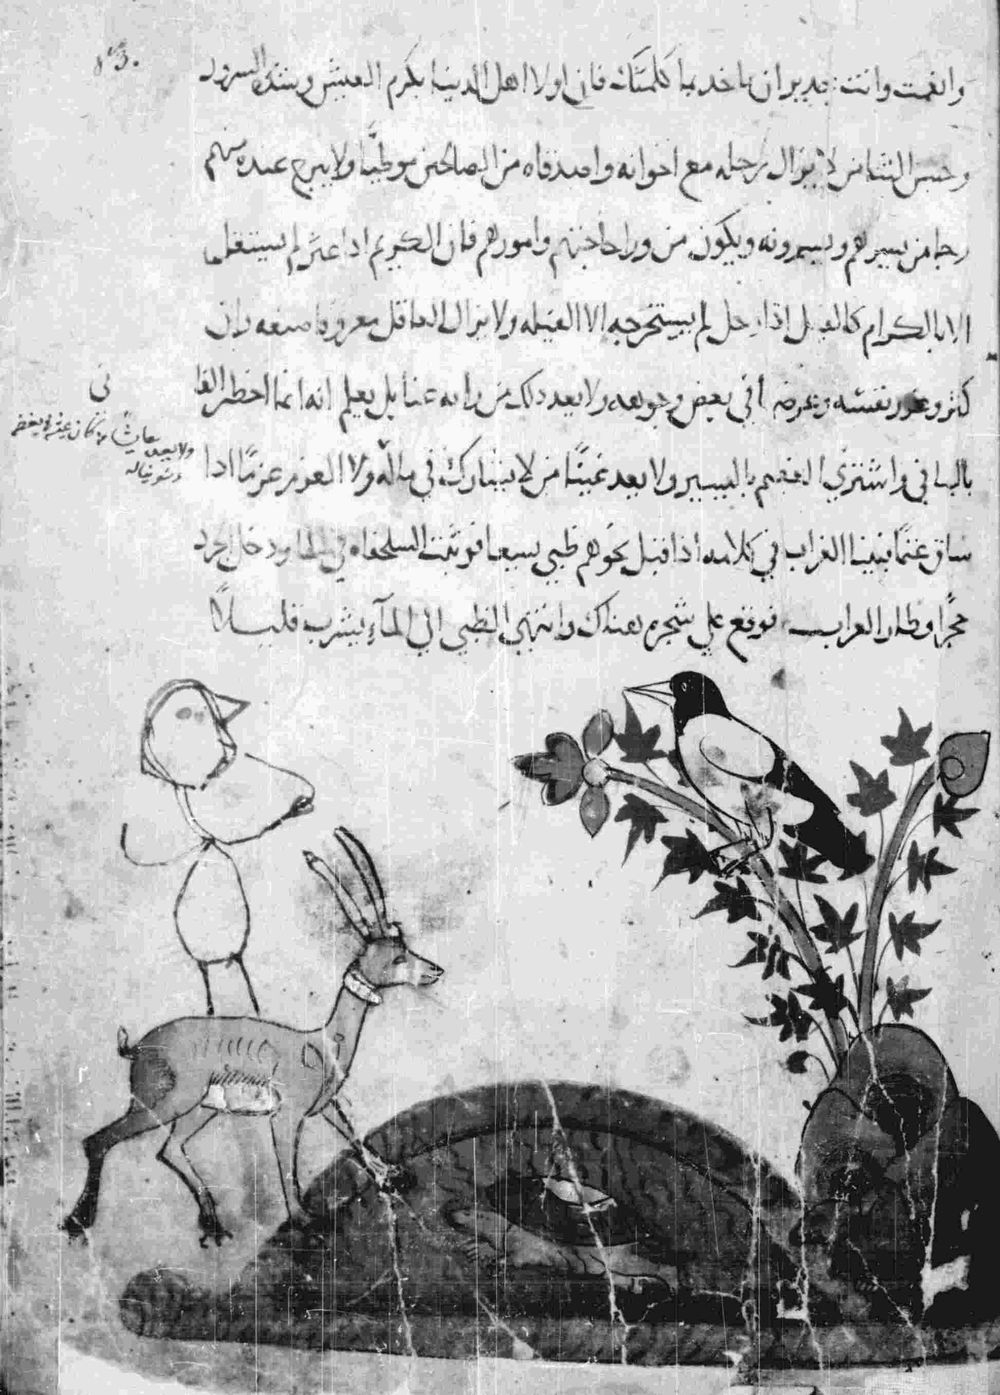 وانعمت وانت جدير ان تاخد بما كلمتك فان اولا اهل الدنيا بكرم العيش وشده السرور
وحسن الثنا من لا يزال رحله مع اخوانه واصدقاه من الصالحين موطيا ولا يبرح عنده منهم
رحا من يسرهم ويسرونه ويكون من ورا حاجتهم وامورهم فان الكريم ادا عثر لم يستقل
الا بالكرام كالفيل ادا وحل لم يستخرجه الا الفيله ولا يزال العاقل معروفا صنعه وان
كثر وغرر نفسه وعرضها في بعض وجوهه ولا يعد دلك من رايه عنا بل يعلم انه انما اخطر الفا
بالباقي واشترى العظيم باليسير ولا يعد غنيا من لا يشارك في ماله ولا الغرم غرما ادا
ساق غنما فبينا الغراب في كلامه اذ اقبل نحوهم ظبي يسعا فوثبت السلحفاه في الما ودخل الجرد
جحرا وطار الغراب فوقع علي شجره هناك وانتهي الظبي الي المآء يشرب قليلا
في
ولا يعد